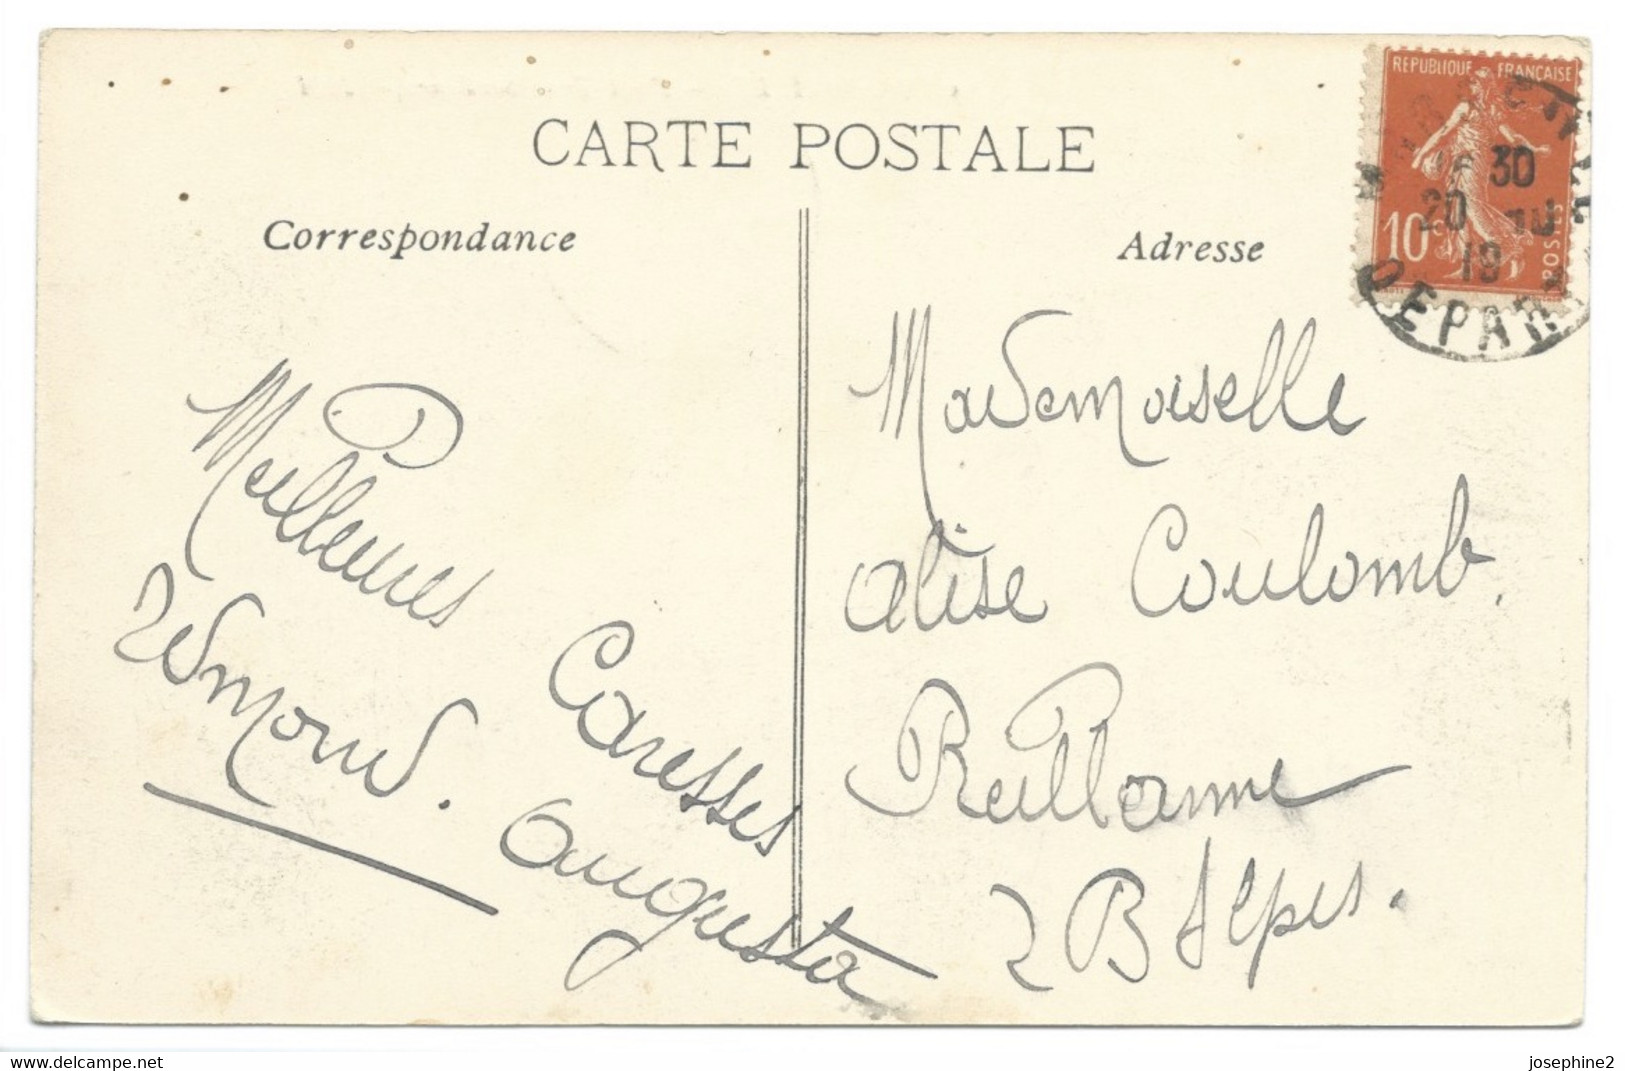 CARTE POSTALE
Correspondance
Adresse
REPUBLIQUE FRANÇAISE
10c
POSTES
30
20
19
DEPART
Meilleures
Caresses
Edmond. Augusta
Mademoiselle
Alise Coulomb.
Reillanne
B Alpes.
www.delcampe.net
josephine2